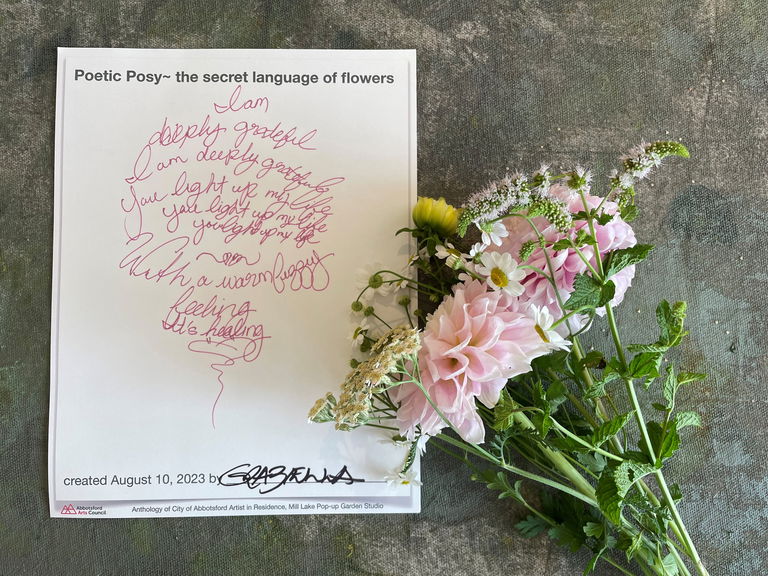 Poetic Posy~ the secret language of flowers
I am
deeply grateful
I am deeply grateful
You light up my life
You light up my life
you light up my life
With a warm fuzzy
feeling
it's healing
created August 10, 2023 by GRAZIELLA
Abbotsford
Arts Council
Anthology of City of Abbotsford Artist in Residence, Mill Lake Pop-up Garden Studio